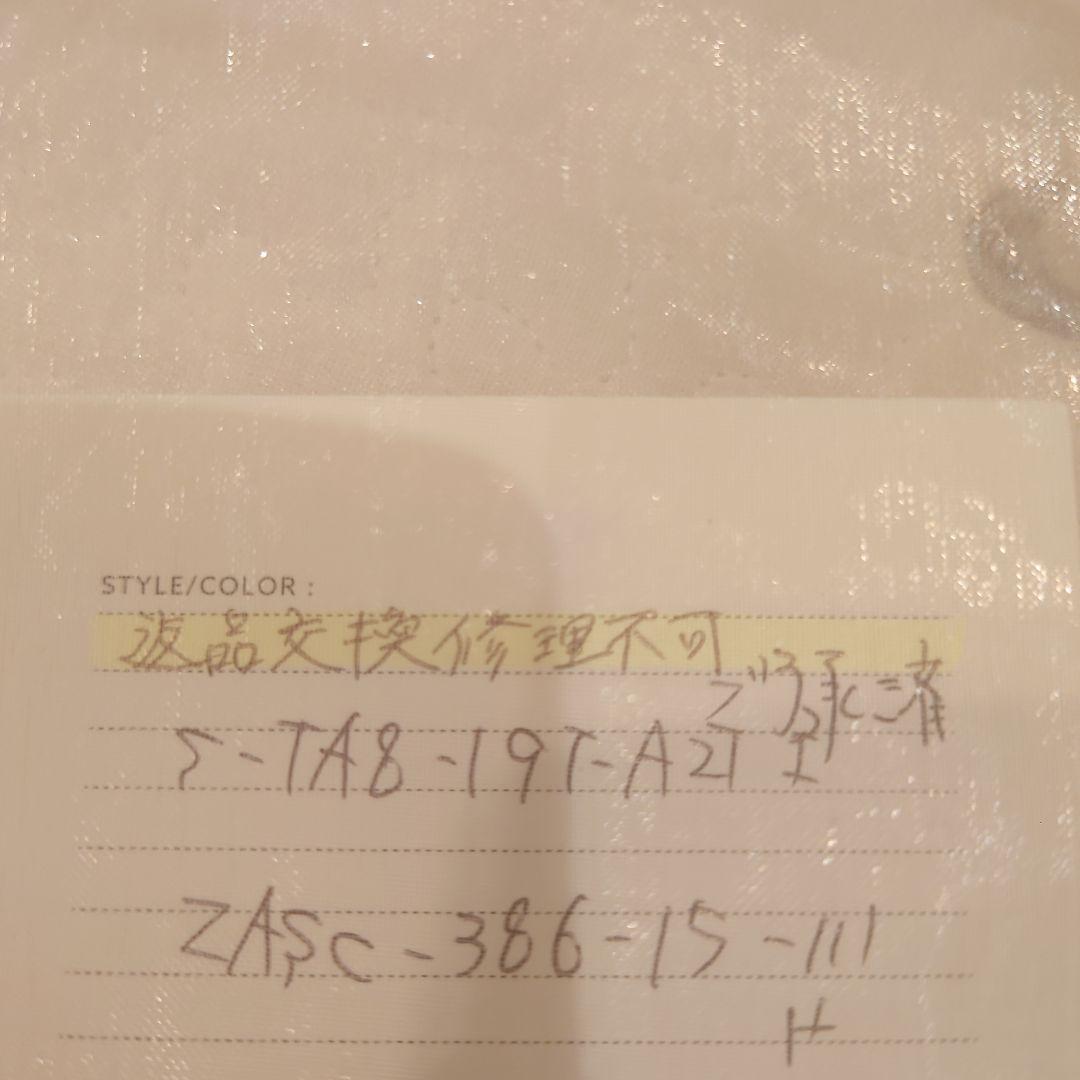 STYLE/COLOR :
返品交換修理不可
ご了承済
Σ-TA8-19T-A2T I
ZASC-386-15-111
H